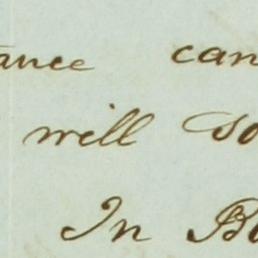 ance can
will so
In Bo